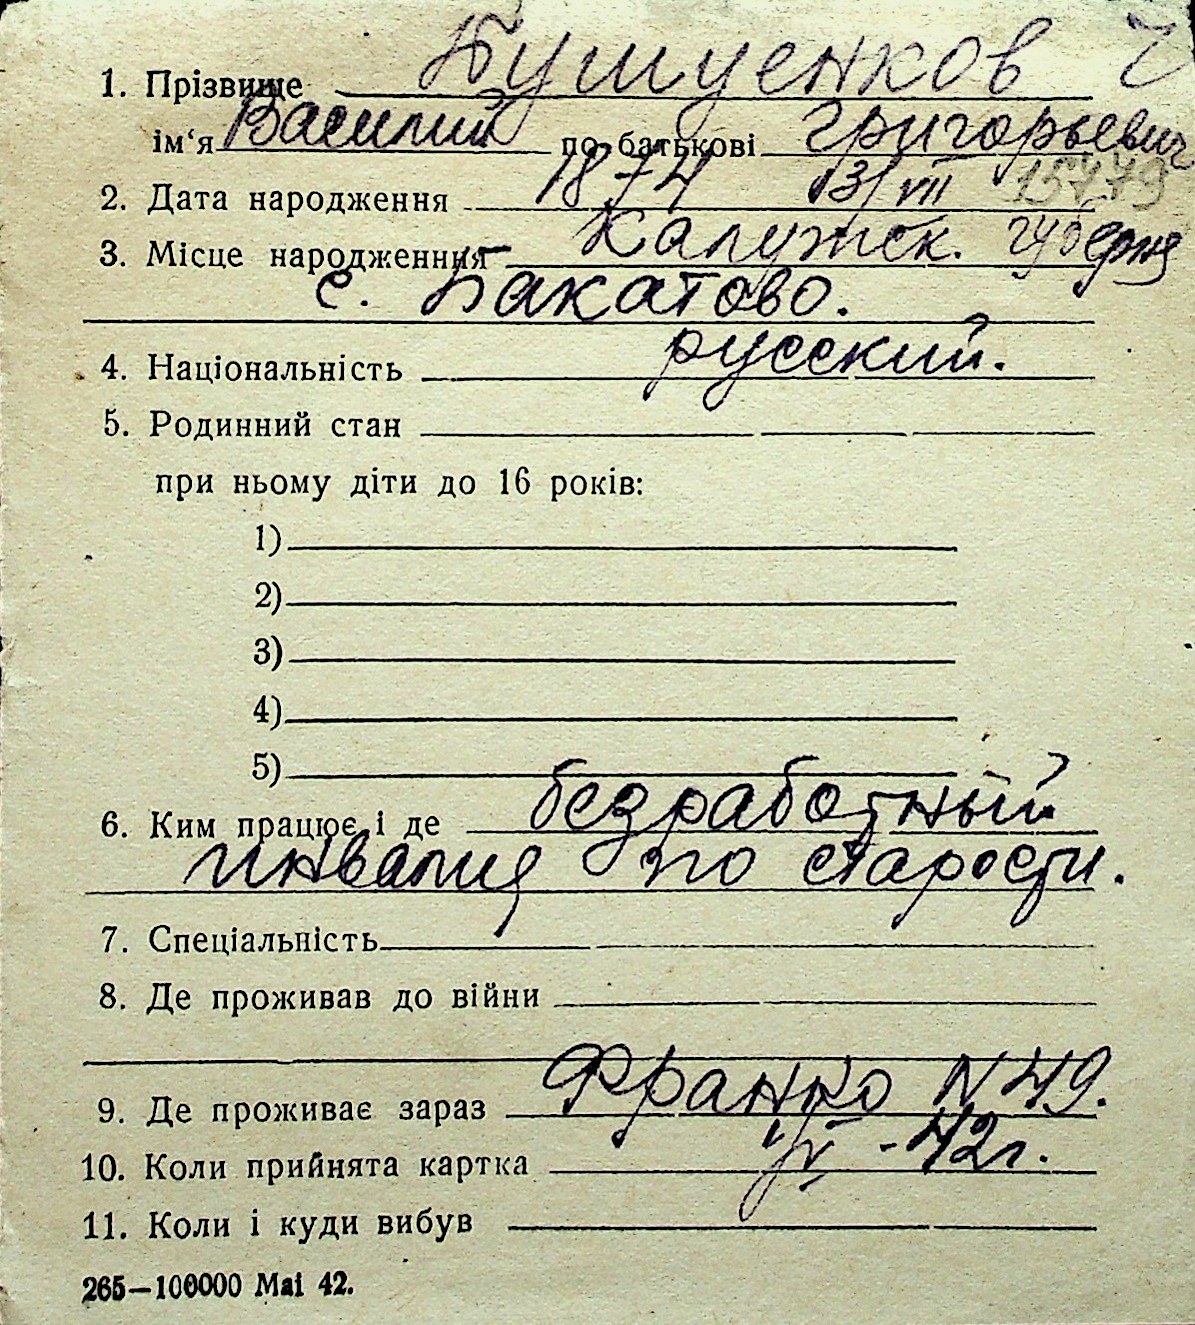 1. Прізвище Бушуенков Ч
ім‘я Василий по батькові Григорьевич
2. Дата народження 1874 13/VII 15779
3. Місце народженния Калужск. губерня
с. Бакатово.
4. Національність русский.
5. Родинний стан
при ньому діти до 16 років:
1)
2)
3)
4)
5)
6. Ким працює і де безработный
инвалид по старости.
7. Спеціальність
8. Де проживав до війни
9. Де проживає зараз Франко N 49.
10. Коли прийнята картка VI - 42 г.
11. Коли і куди вибув
265—100000 Mai 42.